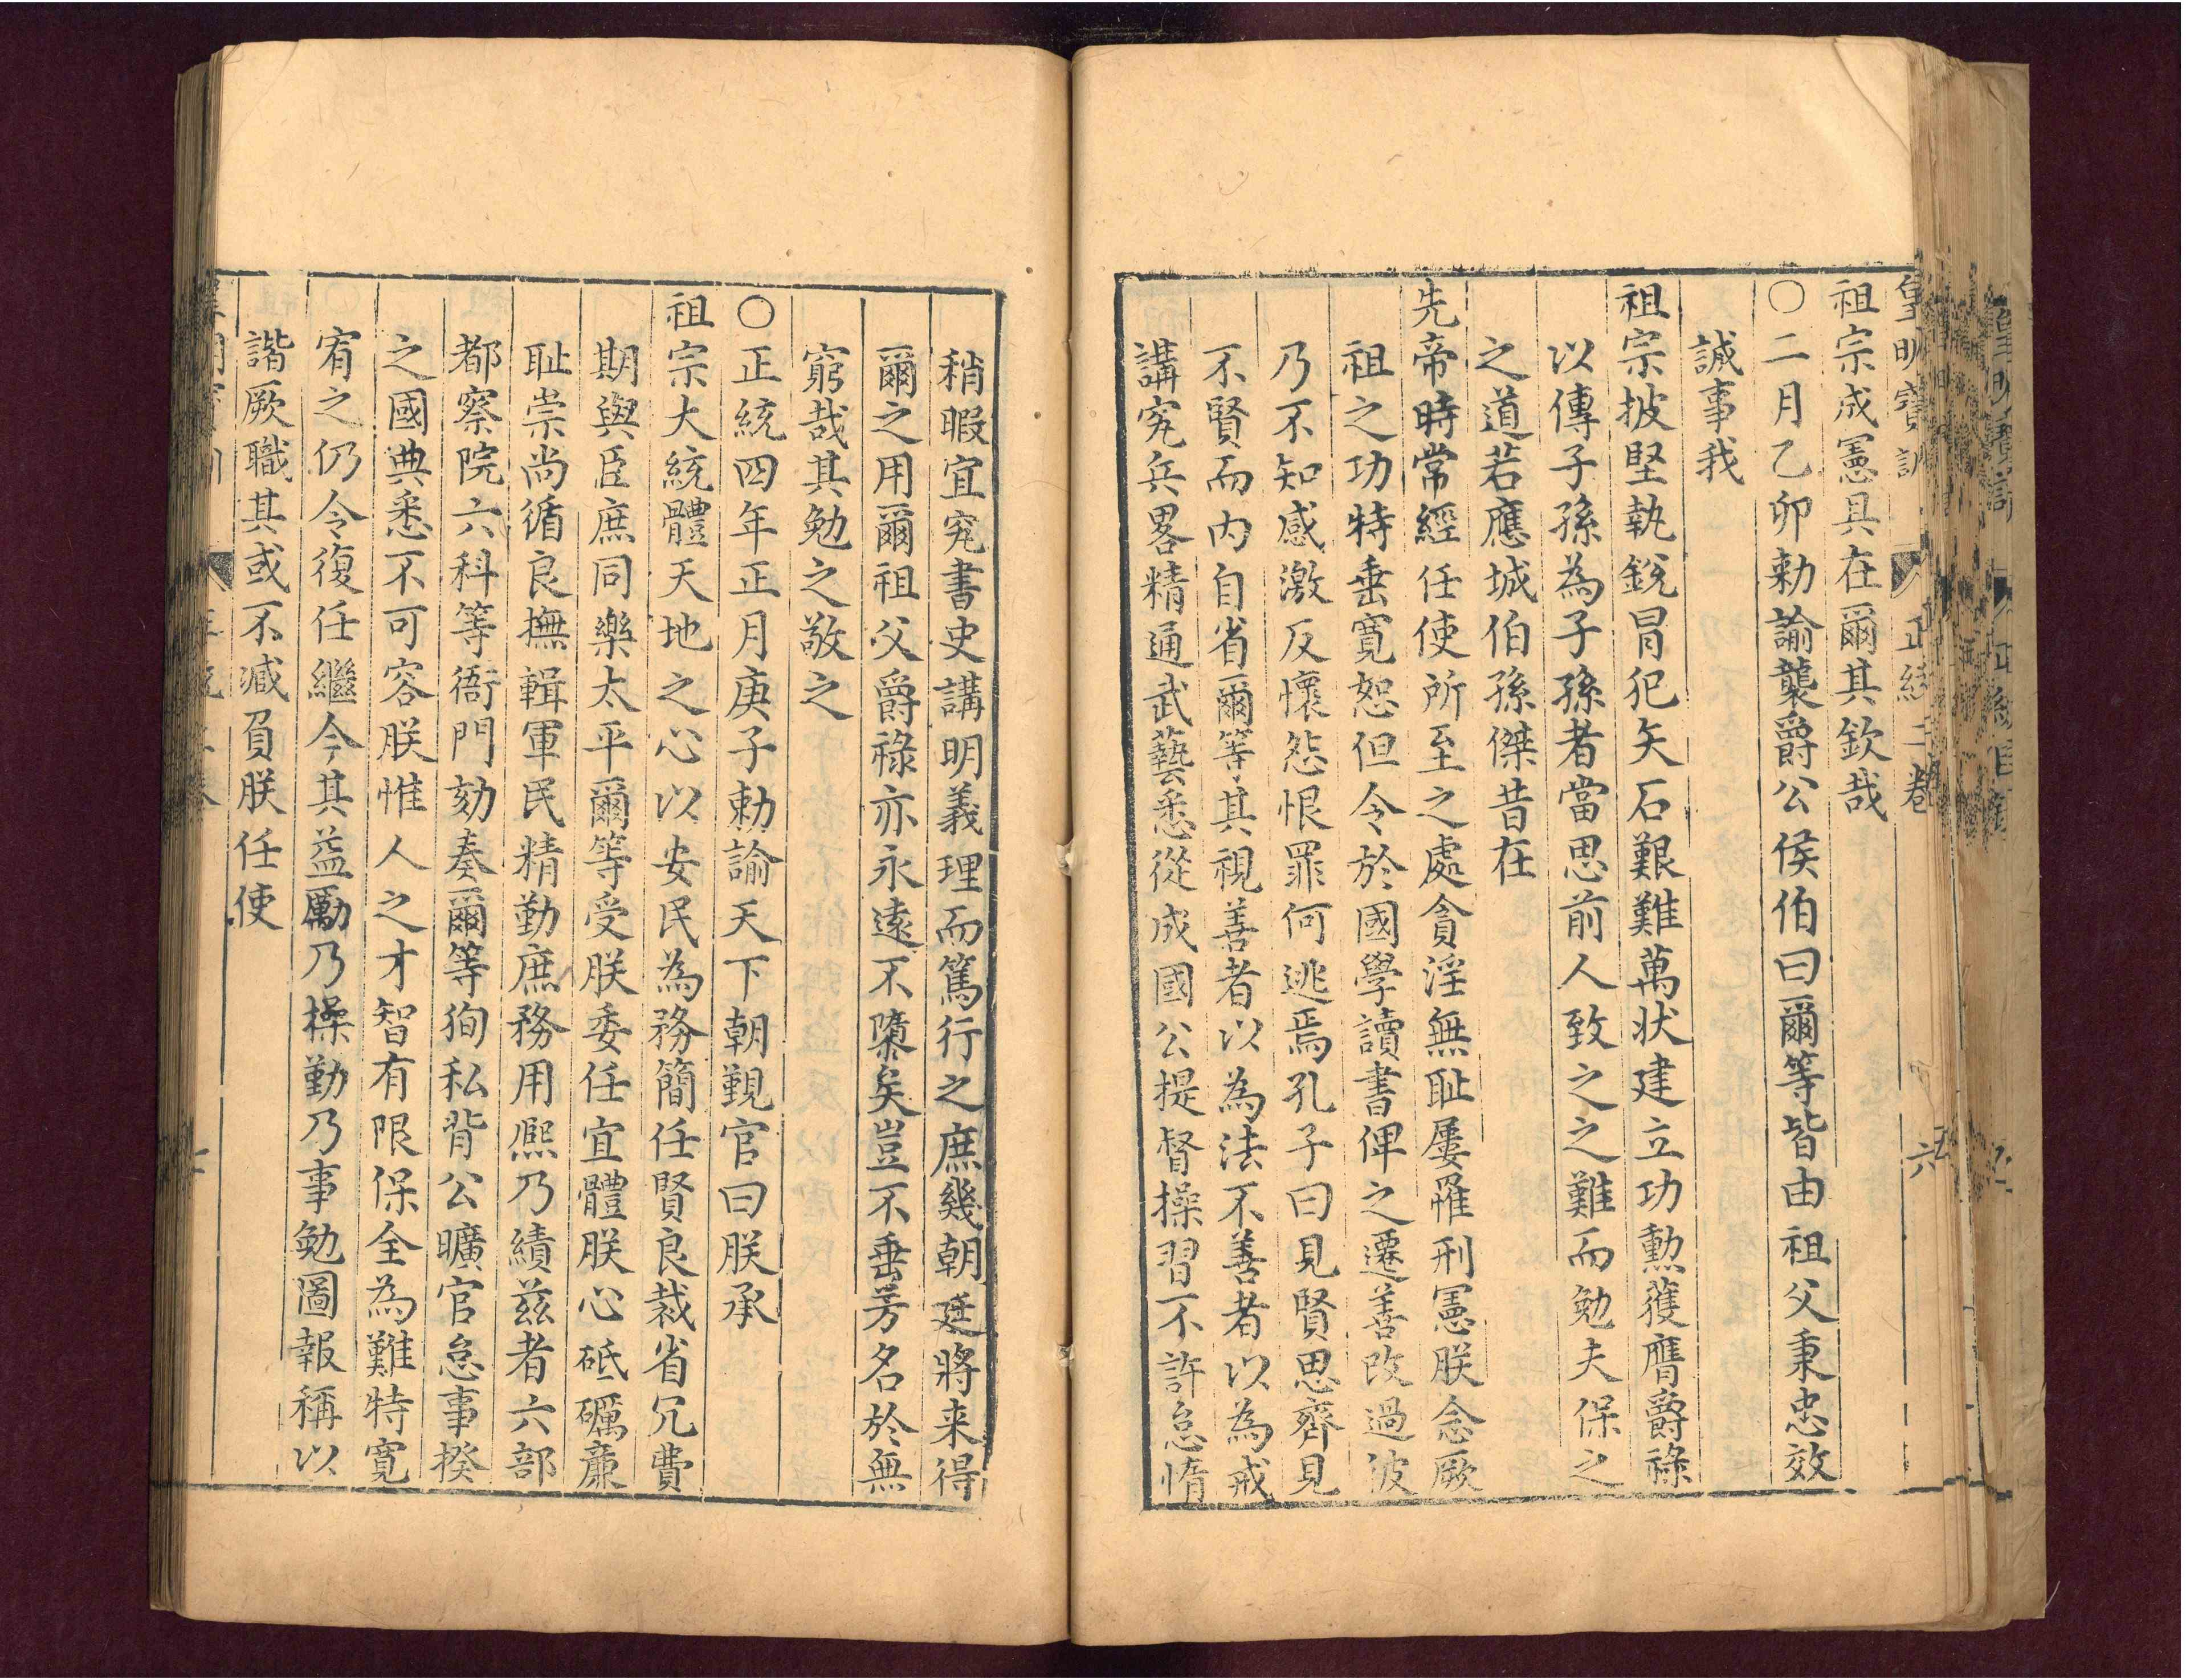 皇明寶訓 正統二卷 六
祖宗成憲具在爾其欽哉
○二月乙卯勅諭襲爵公侯伯曰爾等皆由祖父秉忠效
誠事我
祖宗披堅執銳冒犯矢石艱難萬狀建立功勲獲膺爵祿
以傳子孫為子孫者當思前人致之之難而勉夫保之
之道若應城伯孫傑昔在
先帝時常經任使所至之處貪淫無耻屢罹刑憲朕念厥
祖之功特垂寬恕但令於國學讀書俾之遷善改過波
乃不知感激反懷怨恨罪何逃焉孔子曰見賢思齊見
不賢而內自省爾等其視善者以為法不善者以為戒
講究兵畧精通武藝悉從成國公提督操習不許怠惰
稍暇宜究書史講明義理而篤行之庶幾朝廷將来得
爾之用爾祖父爵祿亦永遠不隳矣豈不垂芳名於無
窮哉其勉之敬之
○正統四年正月庚子勅諭天下朝覲官曰朕承
祖宗大統體天地之心以安民為務簡任賢良裁省冗費
期與臣庶同樂太平爾等受朕委任宜體朕心砥礪廉
耻崇尚循良撫輯軍民精勤庶務用熈乃績兹者六部
都察院六科等衙門劾奏爾等狥私背公曠官怠事揆
之國典悉不可容朕惟人之才智有限保全為難特寬
宥之仍令復任繼今其益勵乃操勤乃事勉圖報稱以
諧厥職其或不減負朕任使